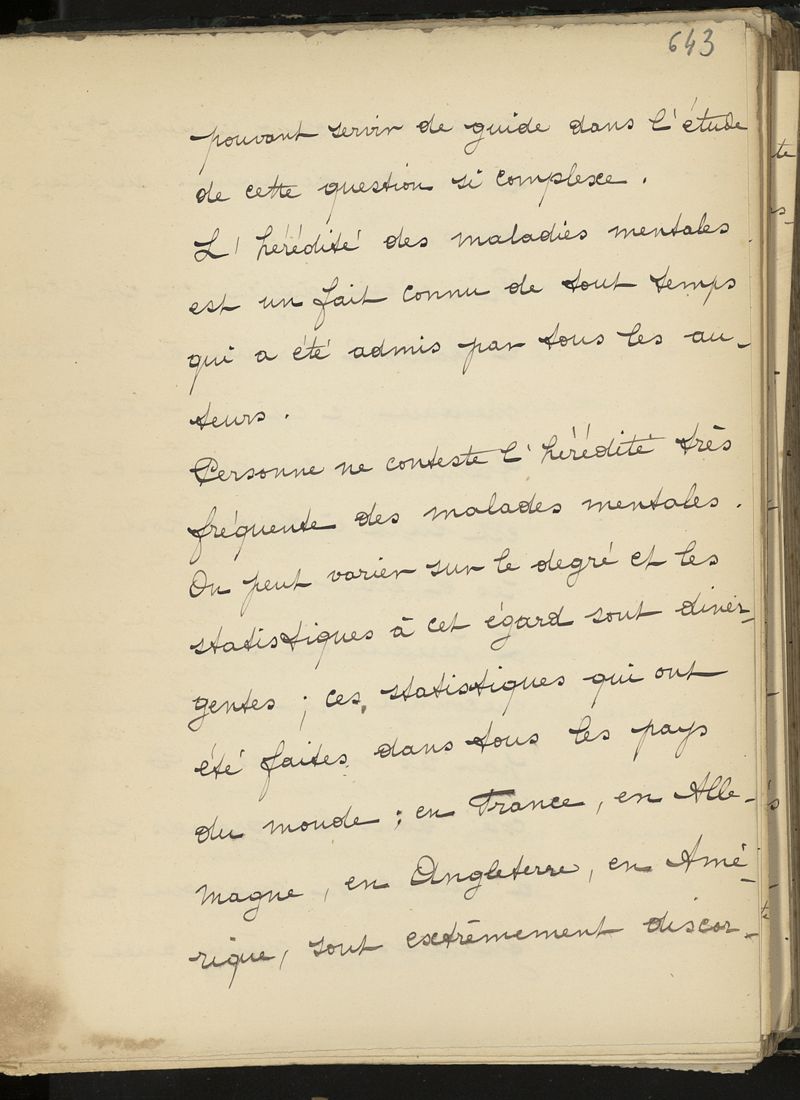 643
pouvant servir de guide dans l'étude
de cette question si complexe.
L'hérédité des maladies mentales
est un fait connu de tout temps
qui a été admis par tous les au-
teurs.
Personne ne conteste l'hérédité très
fréquente des malades mentales.
On peut varier sur le degré et les
statistiques à cet égard sont diver-
gentes ; ces statistiques qui ont
été faites dans tous les pays
du monde ; en France, en Alle-
magne, en Angleterre, en Amé-
rique, sont extrêmement discor-